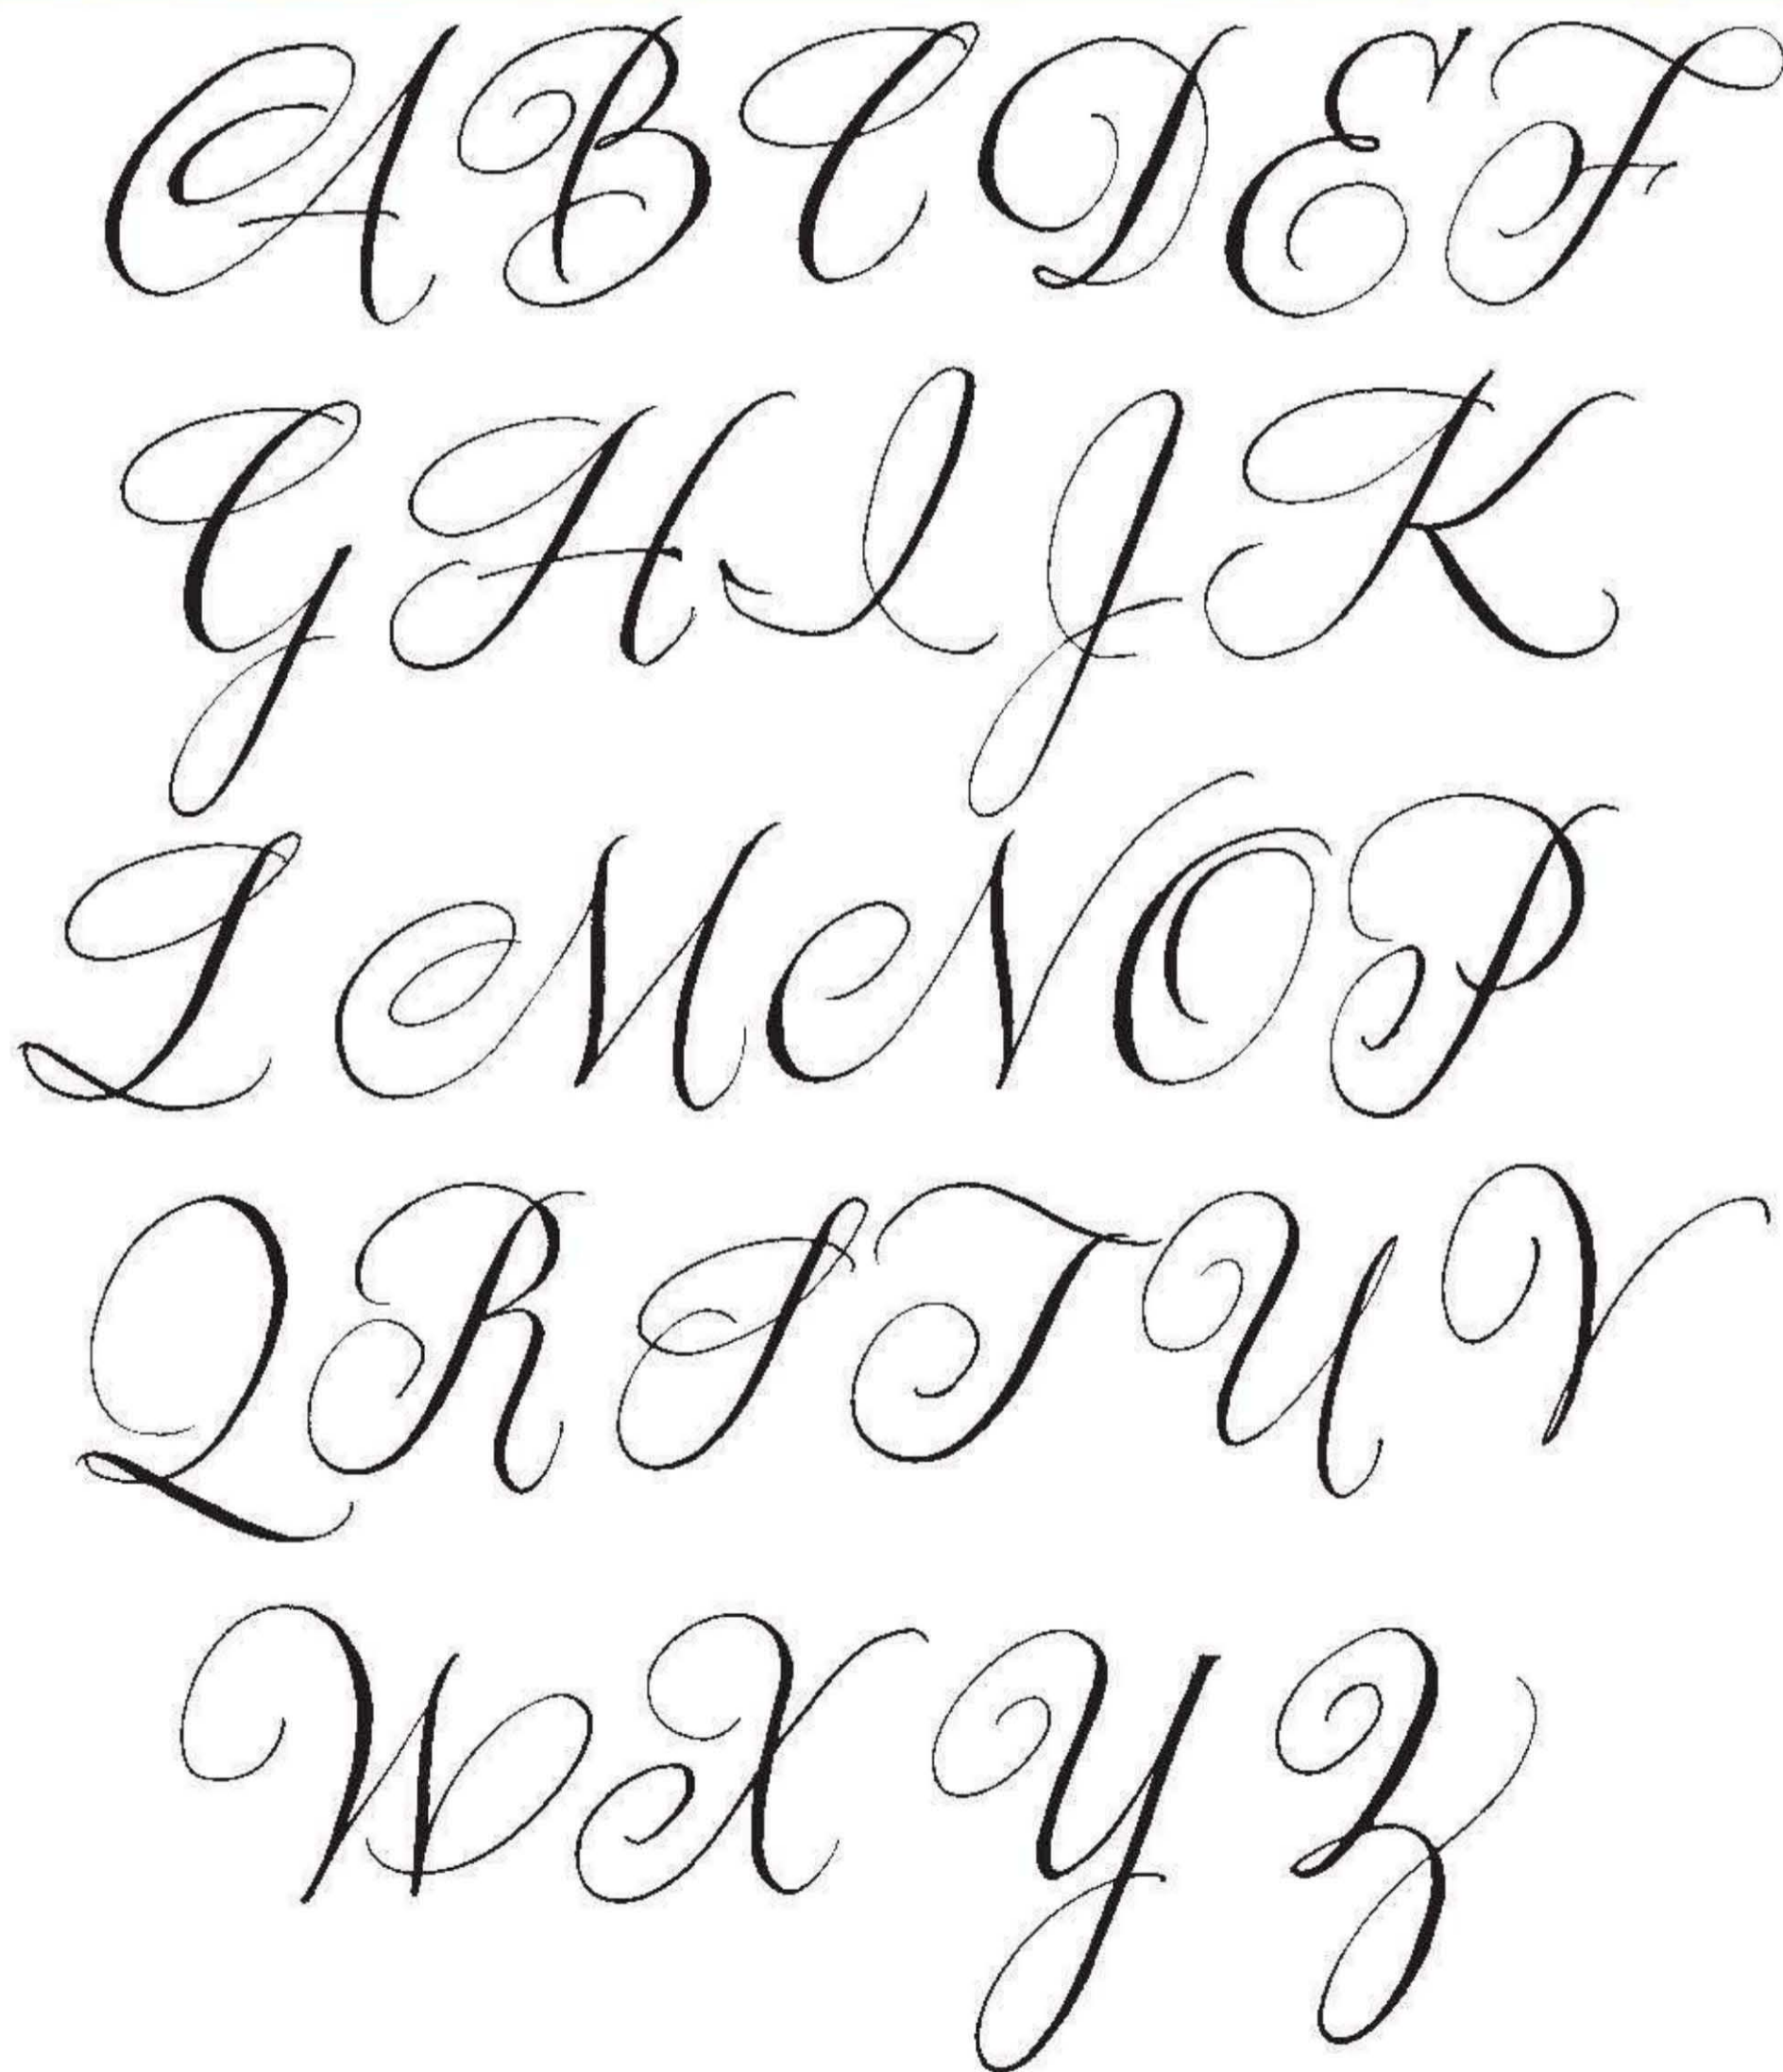 A B C D E F
G H I J K
L M N O P
Q R S T U V
W X Y Z